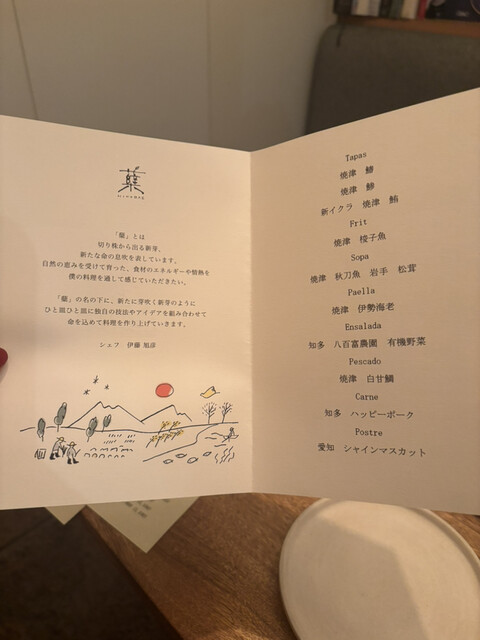 「蘖」とは
切り株から出る新芽。
新たな命の息吹を表しています。
自然の恵みを受けて育った、食材のエネルギーや情熱を
僕の料理を通して感じていただきたい。
「蘖」の名の下に、新たに芽吹く新芽のように
ひと皿ひと皿に独自の技法やアイデアを組み合わせて
命を込めて料理を作り上げていきます。
シェフ 伊藤
Tapas
焼津
焼津
新イクラ 焼津 鮪
Frit
焼津 梭子魚
Sopa
焼津 秋刀魚 岩手 松茸
Paella
焼津 伊勢海老
Ensalada
知多 八百富農園 有機野菜
Pescado
焼津 白甘鯛
Carne
知多 ハッピーポーク
Postre
愛知 シャインマスカット